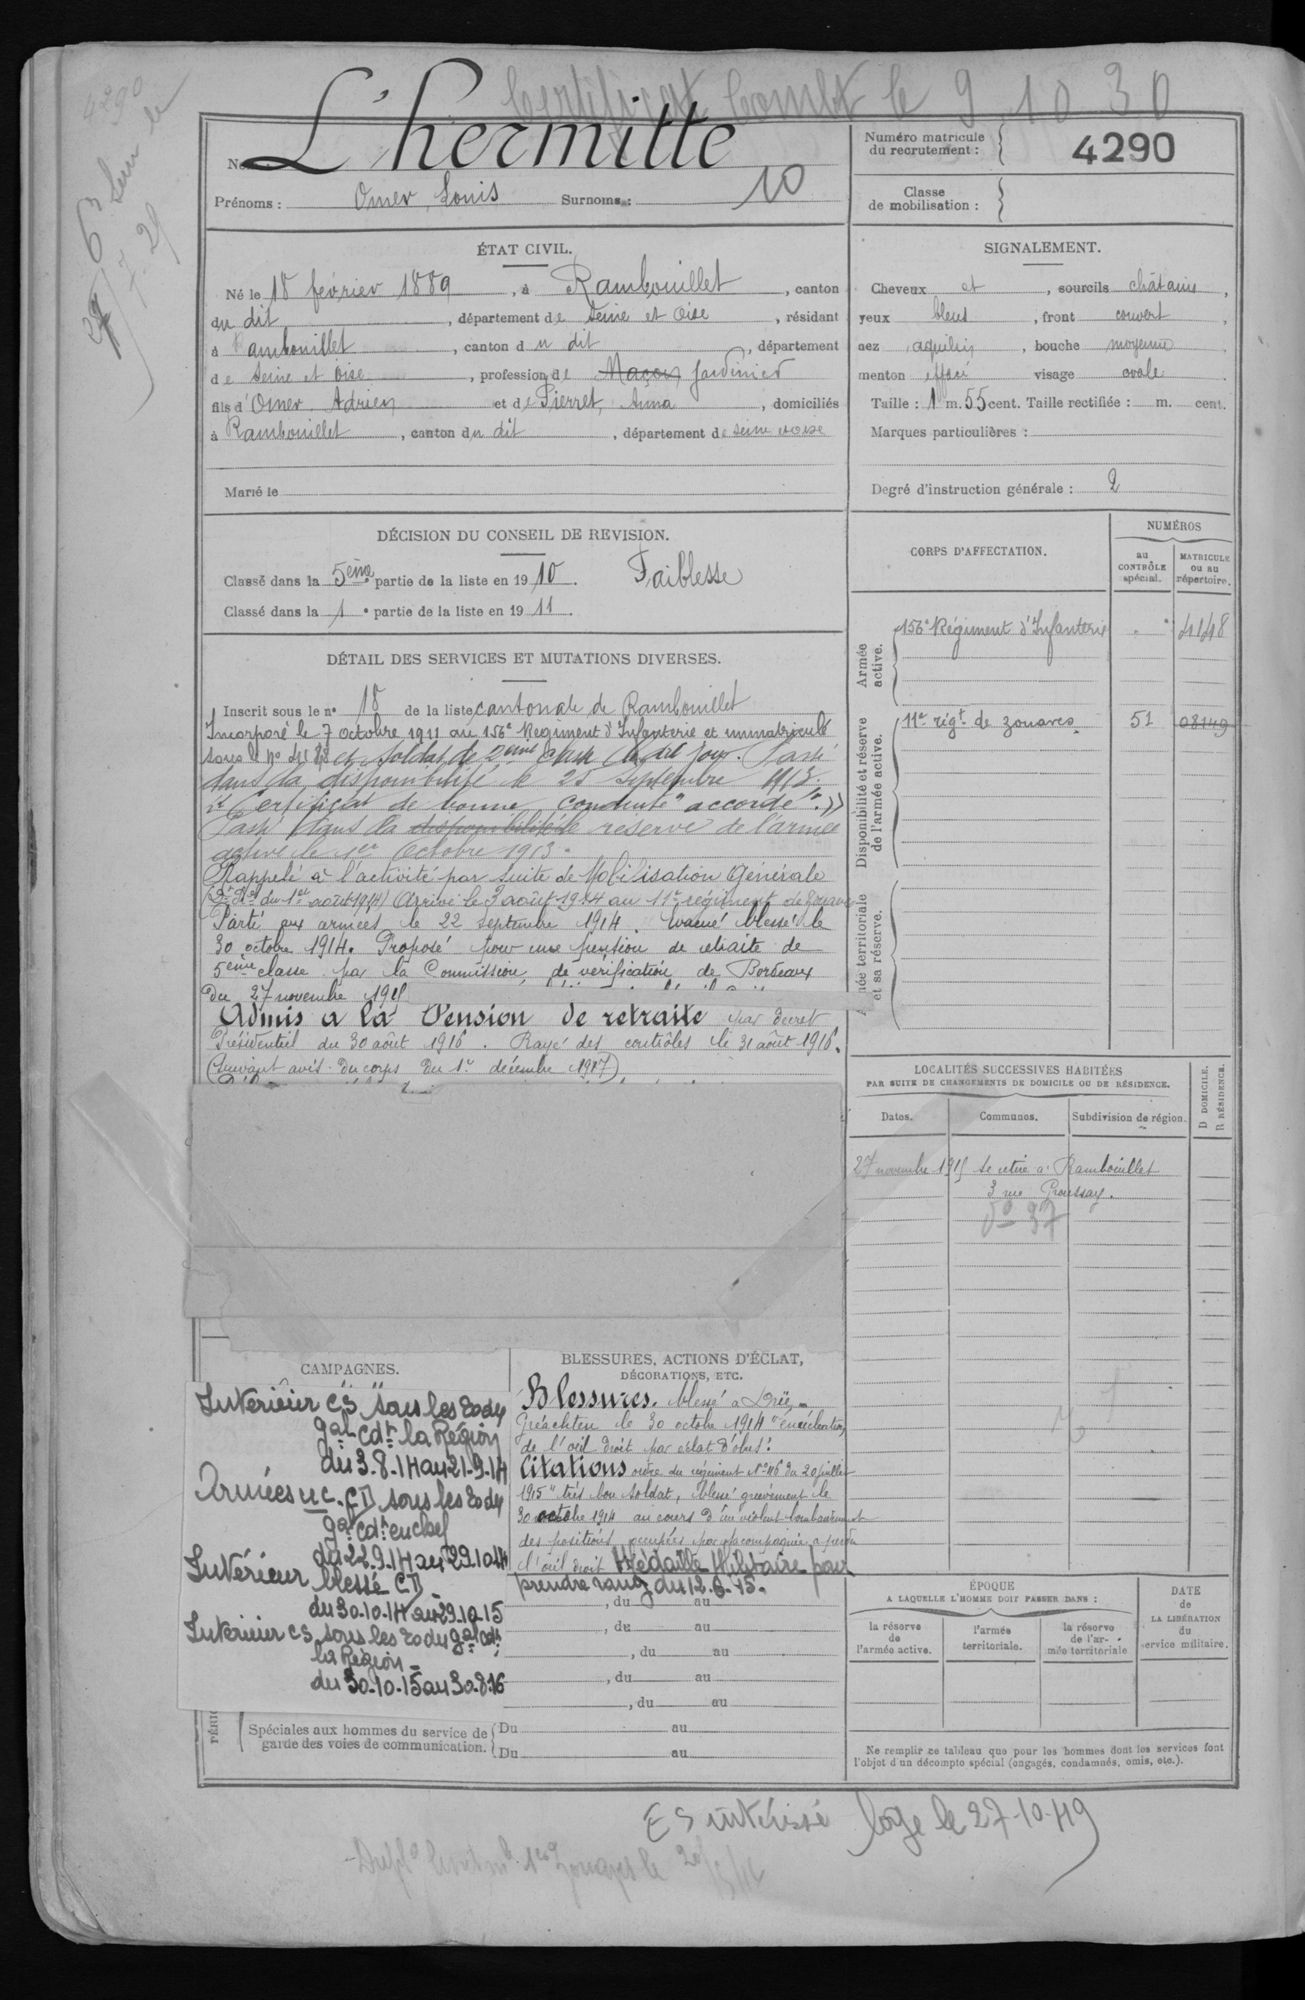 Certificat Combt le 9 10 30
4290
L'hermitte
Numéro matricule
du recrutement :
4290
Prénoms : Omer Louis Surnoms : 10
Classe
de mobilisation :
ÉTAT CIVIL.
Né le 18 février 1889, à Rambouillet, canton
du dit, département de Seine et Oise, résidant
à Rambouillet, canton du dit, département
de Seine et Oise, profession de Maçon Jardinier
fils d'Omer Adrien et de Pierret, Anna, domiciliés
à Rambouillet, canton du dit, département de Seine et Oise
Marié le
SIGNALEMENT.
Cheveux et, sourcils châtains,
yeux bleus, front couvert,
nez aquilin, bouche moyenne
menton effacé visage ovale
Taille : 1 m. 55 cent. Taille rectifiée : m. cent.
Marques particulières :
Degré d'instruction générale : 2
DÉCISION DU CONSEIL DE REVISION.
Classé dans la 5ème partie de la liste en 1910. Faiblesse
Classé dans la 1e partie de la liste en 1911.
DÉTAIL DES SERVICES ET MUTATIONS DIVERSES.
Inscrit sous le n° 18 de la liste cantonale de Rambouillet
Incorporé le 7 octobre 1911 au 156e Régiment d'Infanterie et immatriculé
sous le No et soldat de 2ème classe le dit jour. Passé
dans la disponibilité le 25 Septembre 1913.
"Certificat de bonne conduite" accordé".»
Passé dans la disponibilité réserve de l'armée
active le 1er Octobre 1913.
Rappelé à l'activité par suite de Mobilisation Générale
(Dt Pel du 1er août 1914) Arrivé le 3 août 1914 au 11e régiment de Zouaves
Parti aux armées le 22 septembre 1914. Evacué blessé le
30 octobre 1914. Proposé pour une pension de retraite de
5ème classe par la Commission de vérification de Bordeaux
Du 27 novembre 1915
Admis à la Pension de retraite par décret
Présidentiel du 30 août 1916. Rayé des contrôles le 31 août 1916.
(Suivant avis du corps du 1er décembre 1917)
CORPS D'AFFECTATION.
NUMÉROS
au
CONTRÔLE
spécial.
MATRICULE
OU AU
répertoire.
Armée
active.
156e Régiment d'Infanterie " 4148
Disponibilité et réserve
de l'armée active.
11e régt de zouaves 51 08149
Armée territoriale
et sa réserve.
LOCALITÉS SUCCESSIVES HABITÉES
PAR SUITE DE CHANGEMENTS DE DOMICILE OU DE RÉSIDENCE.
D DOMICILE.
R RÉSIDENCE.
Dates. Communes. Subdivision de région.
27 novembre 1915 se retire à Rambouillet
3 rue Groussay.
CAMPAGNES.
Intérieur CS sous les Eo du
gal cdt la Région
du 3.8.14 au 21.9.14
Armées UC. CD sous les Eo du
gal cdt en chef
du 22.9.14 au 29.10.14
Intérieur blessé CD
du 30.10.14 au 29.10.15
Intérieur CS sous les Eo du gal cdt
la Région
du 30.10.15 au 30.8.16
BLESSURES, ACTIONS D'ÉCLAT,
DÉCORATIONS, ETC.
Blessures. blessé à Drië-
Gréachten le 30 octobre 1914 "énucléation
de l'œil droit par éclat d'obus".
Citations ordre du régiment No 46 du 20 juillet
1915 "très bon soldat, blessé grièvement le
30 octobre 1914 au cours d'un violent bombardement
des positions occupées par sa compagnie, a perdu
l'œil droit Médaille Militaire pour
prendre rang du 12.6.15.
, du au
, du au
, du au
, du au
, du au
Spéciales aux hommes du service de
garde des voies de communication.
Du au
Du au
ÉPOQUE
A LAQUELLE L'HOMME DOIT PASSER DANS :
la réserve
de
l'armée active.
l'armée
territoriale.
la réserve
de l'ar-
mée territoriale
DATE
de
LA LIBÉRATION
du
service militaire.
Ne remplir ce tableau que pour les hommes dont les services font
l'objet d'un décompte spécial (engagés, condamnés, omis, etc.).
ES intéressé le 27-10-49